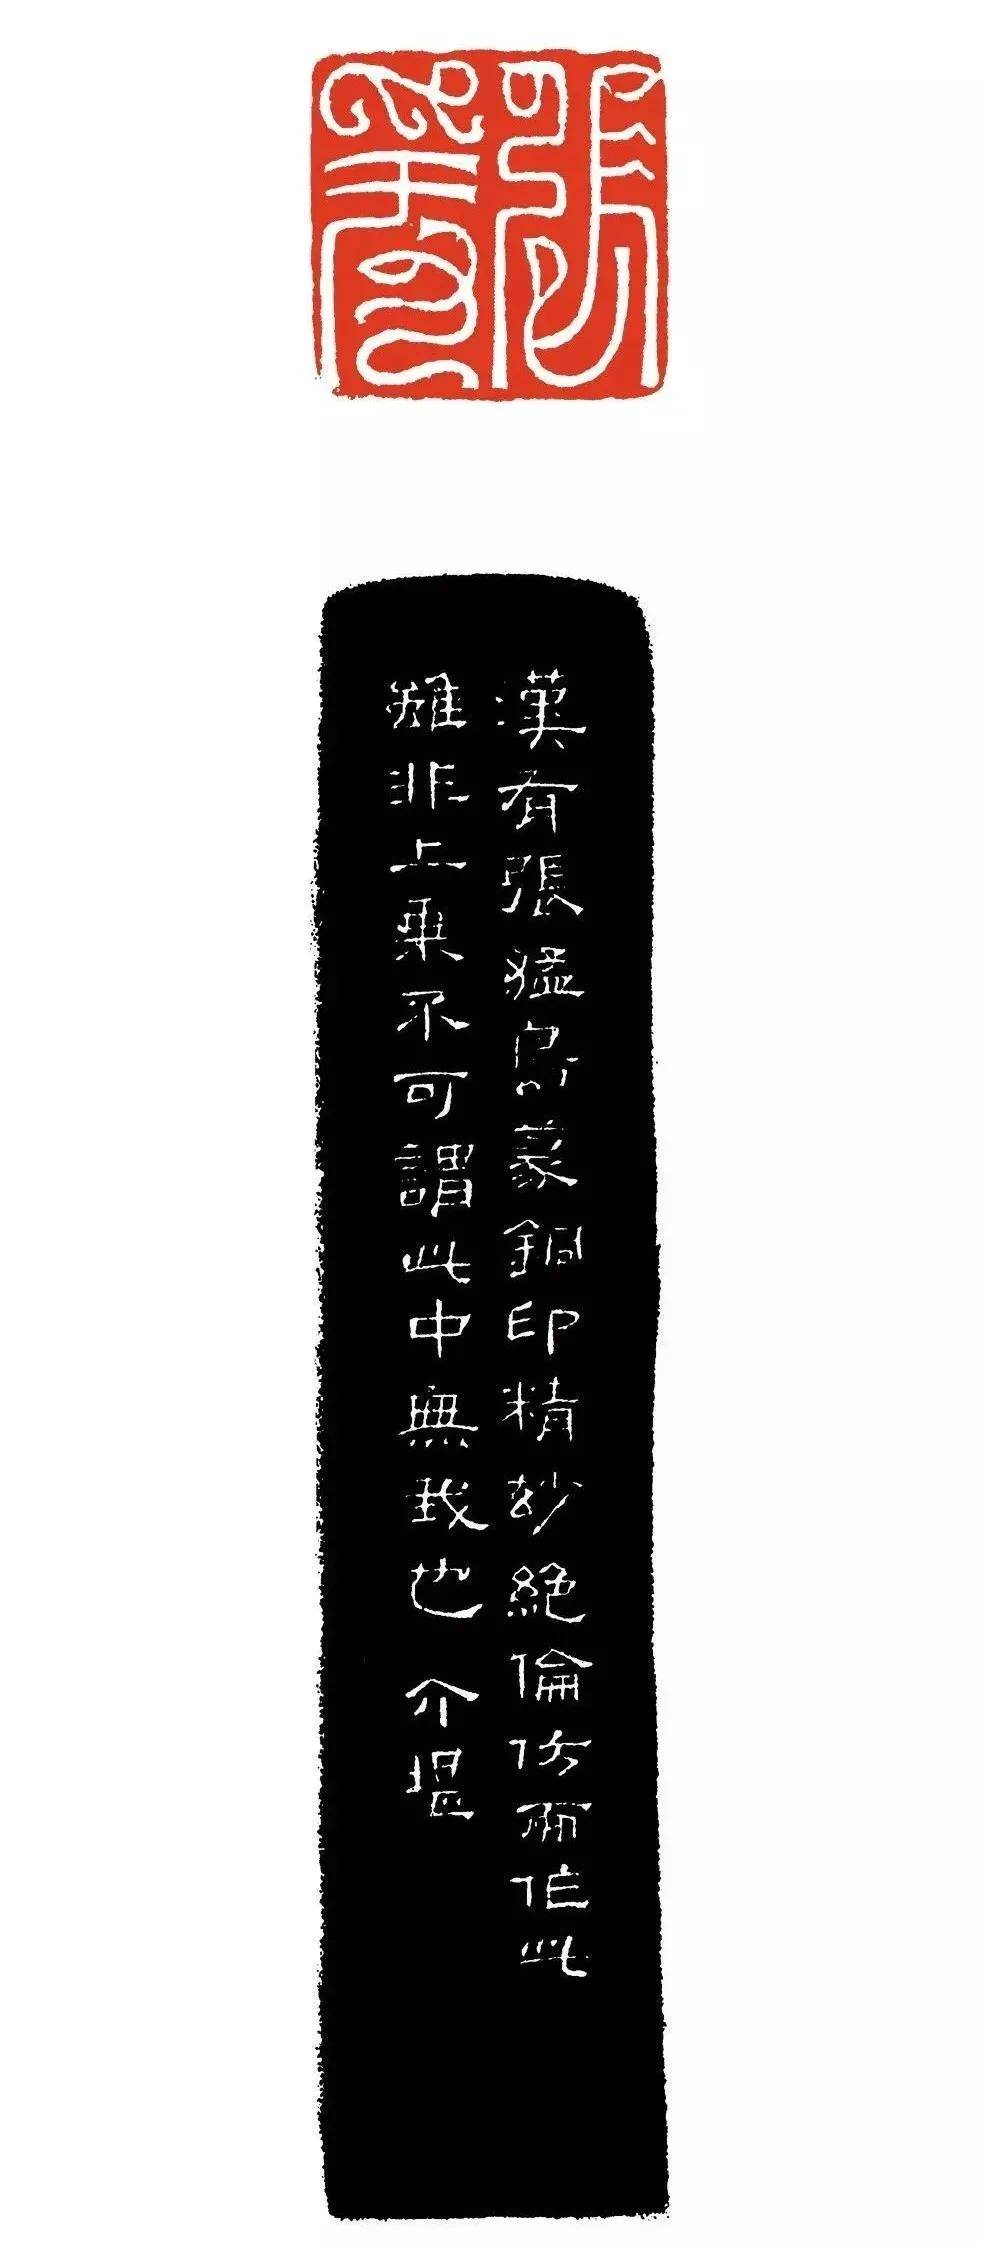 漢有張猛鳥篆銅印精玅絕倫仿而作此
雖非上乘不可謂此中無我也 介堪